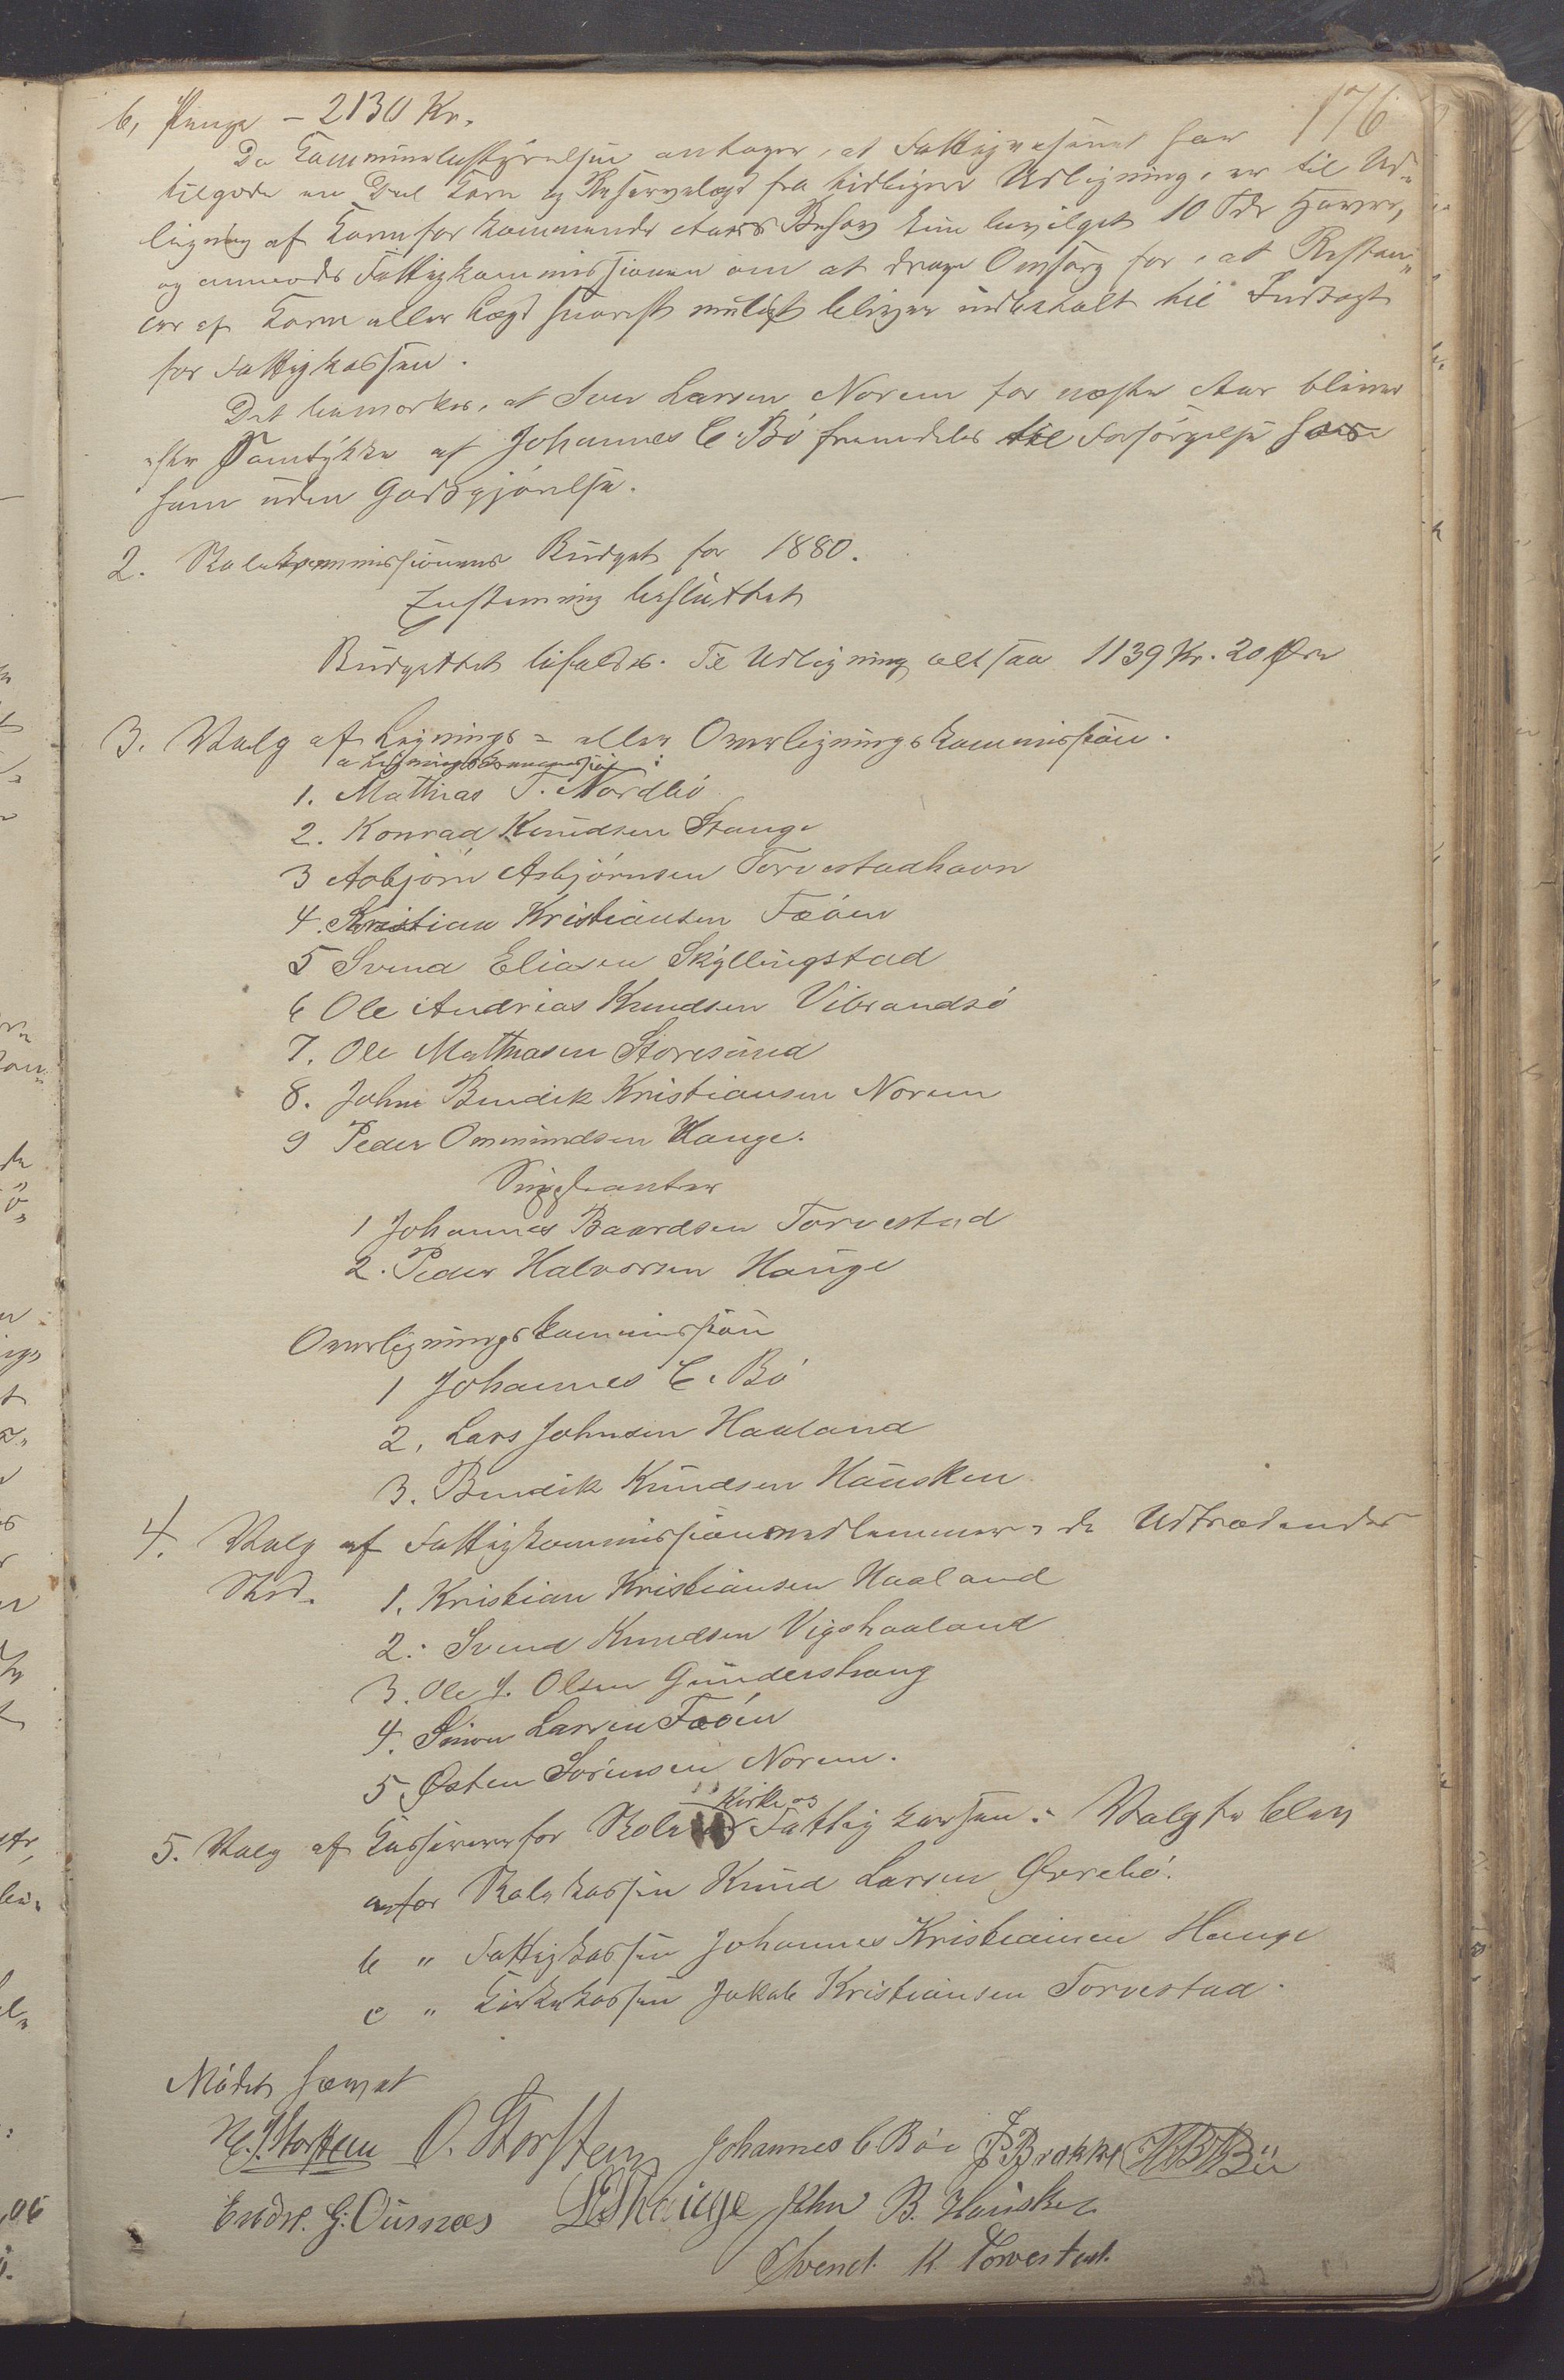 176
b, Penge – 2130 Kr.
Da Kommunebestyrelsen antager, at Fattigvæsenet har
tilgode en Deel Korn og Reservelægd fra tidligere Udligning, er til Ud„
ligning af Korn for kommende Aars Behov kun bevilget 10 Tdr Havre,
og anmodes Fattigkommissionen om at drage Omsorg for, at Restan„
cer af Korn eller Lægd snarest muligt bliver indbetalt til Indtægt
for Fattigkassen.
Det bemærkes, at Sven Larsen Norem for næste Aar bliver
efter Samtykke af Johannes C. Bö fremdeles til Forsörgelse hos
ham uden Godtgjörelse.
2. Skolekommissionens Budget for 1880.
Enstemmig besluttet
Budgettet bifaldes. Til Udligning altsaa 1139 Kr. 20 Øre
3. Valg af Lignings= eller Overligningskommission.
a Ligningskommission:
1. Mathias T. Nordbö
2. Konrad Knudsen Stange
3 Asbjörn Asbjörnsen Torvestadhavn
4. Kristian Kristiansen Fæöen
5 Svend Eliasen Skyllingstad
6 Ole Andrias Knudsen Vibrandsö
7. Ole Mathiasen Storesund
8. John Bendik Kristiansen Norem
9 Peder Ommundsen Hauge.
Suppleanter
1 Johannes Baardsen Torvestad
2. Peder Halvorsen Hauge
Overligningskommission
1 Johannes C. Bö
2, Lars Johnsen Haaland
3. Bendik Knudsen Hausken
4. Valg af Fattigkommissionsmedlemmer i de Udtrædendes
Sted. 1. Kristian Kristiansen Haaland
2. Svend Knudsen Vigshaaland
3. Ole J. Olsen Gunderstvang
4. Simon Larsen Fæöen
5 Østen Sörensen Norem.
Kirke og
5. Valg af Kasserer for Skole Fattigkassen: Valgte blev
a for Skolekassen Knud Larsen Grevebö.
b „ Fattigkassen Johannes Kristiansen Hauge
c „ Kirkekassen Jakob Kristiansen Torvestad.
Mödet hævet
Storstein O. Storstein Johannes C Böe Brække
Endre. G. Ousnæs Hauge John B. Hausken
Svend. K. Torvestad.